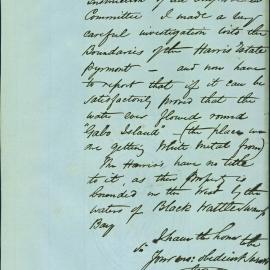 Committee I made a very
careful investigation into the
Boundaries of the Harris Estate
Pyrmont — and now have
to report that if it can be
satisfactorily proved that the
water ever flowed round
"Gabo Island" — (the place we
are getting White Metal from)
The Harris's have no title
to it, as this property is
bounded on the West by the
waters of Black Wattle Swamp
Bay
I have the honor to be
Your obedient servant